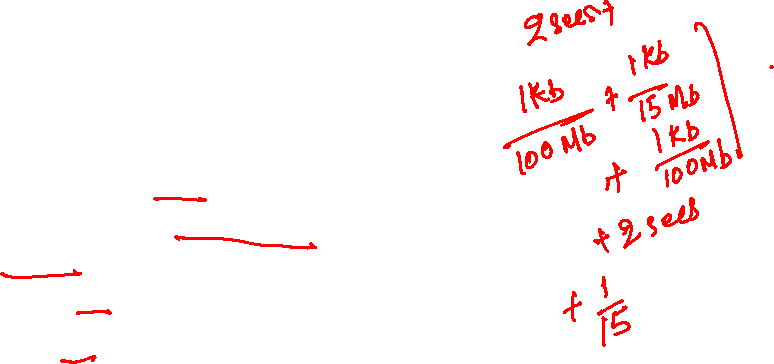 2secs+
1Kb/100Mb + 1Kb/15Mb
+ 1Kb/100Mb
+ 2secs
+ 1/15